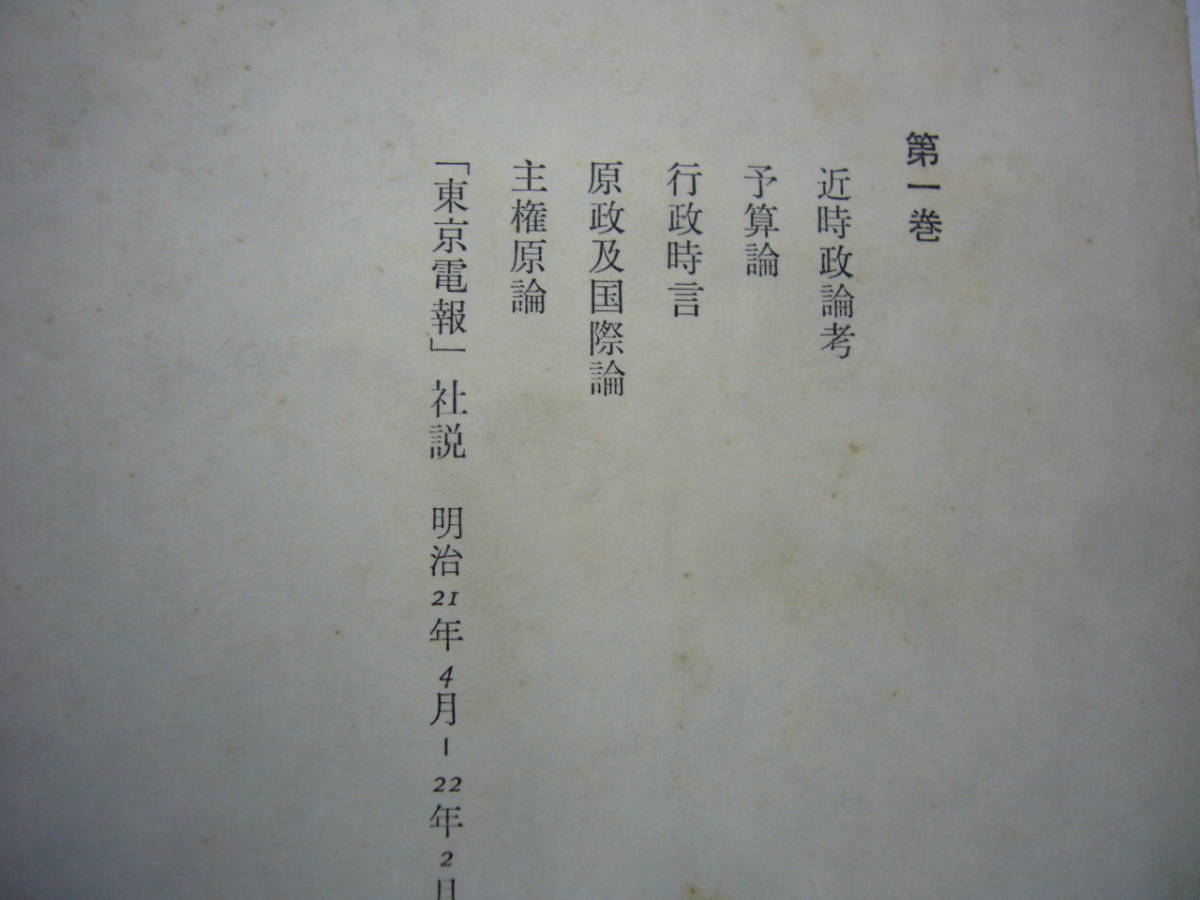 第一巻
近時政論考
予算論
行政時言
原政及国際論
主権原論
「東京電報」社説　明治21年4月―22年2月